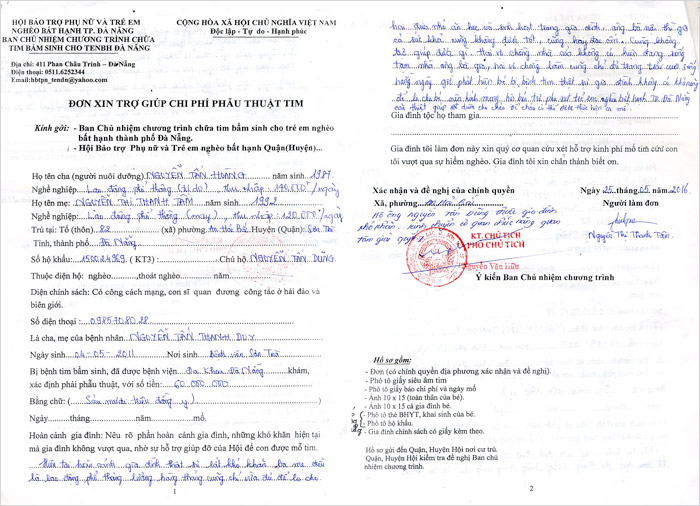 HỘI BẢO TRỢ PHỤ NỮ VÀ TRẺ EM
NGHÈO BẤT HẠNH TP. ĐÀ NẴNG
BAN CHỦ NHIỆM CHƯƠNG TRÌNH CHỮA
TIM BẨM SINH CHO TENBH ĐÀ NẴNG
Địa chỉ: 411 Phan Châu Trinh – Đà Nẵng
Điện thoại: 0511.6252344
Email:hbtpn_tendn@yahoo.com
CỘNG HÒA XÃ HỘI CHỦ NGHĨA VIỆT NAM
Độc lập - Tự do - Hạnh phúc
ĐƠN XIN TRỢ GIÚP CHI PHÍ PHẪU THUẬT TIM
Kính gởi: - Ban Chủ nhiệm chương trình chữa tim bẩm sinh cho trẻ em nghèo
bất hạnh thành phố Đà Nẵng.
- Hội Bảo trợ Phụ nữ và Trẻ em nghèo bất hạnh Quận(Huyện)...
Họ tên cha (người nuôi dưỡng) NGUYỄN TẤN THOÀNG sinh năm 1987.
Nghề nghiệp Lao động phổ thông (tự do) thu nhập: 140.000/ngày
Họ tên mẹ: NGUYỄN THỊ THANH TÂM sinh năm 1992
Nghề nghiệp: Lao động phổ thông (may) thu nhập: 120.000/ngày
Trú tại: Tổ (thôn) 82 (xã) phường An Hải Bắc Huyện (Quận): Sơn Trà
Tỉnh, thành phố Đà Nẵng
Số hộ khẩu: 150024969 (KT3) : Chủ hộ NGUYỄN TẤN DŨNG
Thuộc diện hộ: nghèo, thoát nghèo năm
Diện chính sách: Có công cách mạng, con sĩ quan đương công tác ở hải đảo và
biên giới.
Số điện thoại : 0985708028
Là cha, mẹ của bệnh nhân NGUYỄN TẤN THANH DUY
Ngày sinh 04-05-2011 Nơi sinh Bệnh viện Sơn Trà
Bị bệnh tim bẩm sinh, đã được bệnh viện Đa Khoa Đà Nẵng khám,
xác định phải phẫu thuật, với số tiền: 60.000.000
Bằng chữ: ( Sáu mươi triệu đồng y )
Ngày tháng năm mổ.
Hoàn cảnh gia đình: Nêu rõ phần hoàn cảnh gia đình, những khó khăn hiện tại
mà gia đình không vượt qua, nhờ sự hỗ trợ giúp đỡ của Hội để con được mổ tim.
hoàn cảnh gia đình thật sự rất khó khăn. Ba mẹ đều
là lao động phổ thông lương hàng tháng cũng chỉ vừa đủ để lo cho
1
hai đứa nhỏ ăn học và sinh hoạt trong gia đình, ông bà nội thì già
cả sức khỏe cũng không được tốt, cũng hay ốm đau. Cũng không
Gia đình tộc họ tham gia
Gia đình tôi làm đơn này xin quý cơ quan cứu xét hỗ trợ kinh phí mổ tim cứu con
tôi vượt qua sự hiểm nghèo. Gia đình tôi xin chân thành biết ơn.
Xác nhận và đề nghị của chính quyền
Xã, phường
Hộ ông Nguyễn Tấn Dũng
Ngày 25 tháng 05 năm 2016
Người làm đơn
Nguyễn Thị Thanh Tâm
KT. CHỦ TỊCH
PHÓ CHỦ TỊCH
Nguyễn Văn Hữu
Ý kiến Ban Chủ nhiệm chương trình
Hồ sơ gồm:
- Đơn (có chính quyền địa phương xác nhận và đề nghị).
- Phô tô giấy siêu âm tim
- Phô tô giấy báo chi phí và ngày mổ
- Ảnh 10 x 15 (toàn thân của bé).
- Ảnh 10 x 15 cả gia đình bé.
- Phô tô thẻ BHYT, khai sinh của bé.
- Phô tô hộ khẩu.
- Gia đình chính sách có giấy kèm theo.
Hồ sơ gửi đến Quận, Huyện Hội nơi cư trú.
Quận, Huyện Hội kiểm tra đề nghị Ban chủ
nhiệm chương trình.
2